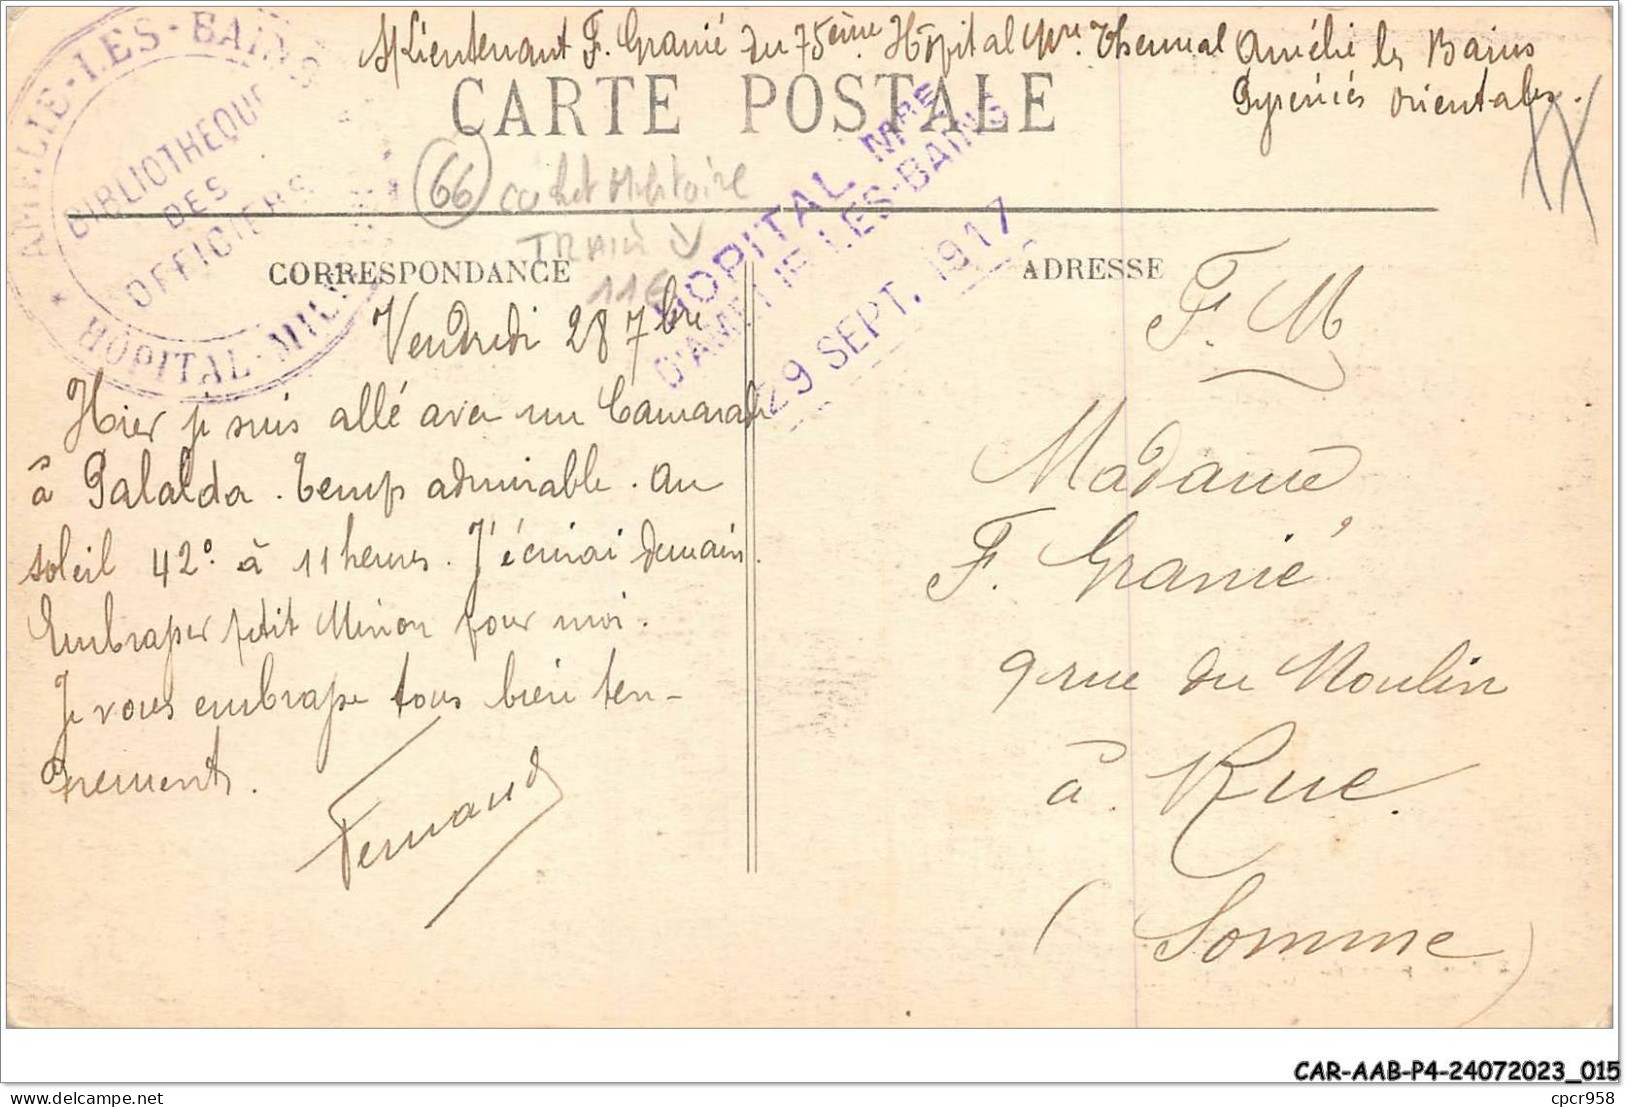 S/Lieutenant F. Granié du 75ème. Hôpital Mre. Thermal Amélie les Bains
Pyrénées Orientales.
CARTE POSTALE
AMELIE-LES-BAINS
BIBLIOTHEQUE
DES
OFFICIERS
* HÔPITAL-MILI
66 cachet Militaire
TRAIN
11€
HOPITAL MRE
D'AMELIE LES-BAINS
29 SEPT. 1917
CORRESPONDANCE
Vendredi 28 7bre
Hier je suis allé avec un Camarade
à Palalda. Temps admirable. Au
soleil 42° à 11 heures. J'écrirai demain.
Embrasser petit Mimon pour moi.
Je vous embrasse tous bien ten-
drement.
Fernand
ADRESSE
F. M
Madame
F. Granié
9 rue du Moulin
à Rue.
(Somme)
CAR-AAB-P4-24072023_015
delcampe.net
cpcr958